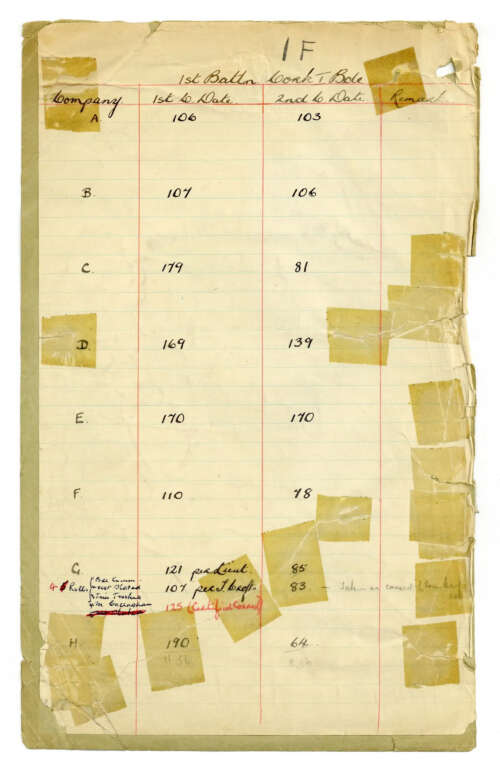 1F
1st Battn Cork 1 Bde
Company 1st C. Date 2nd C. Date Remark
A. 106 103
B. 107 106
C. 179 81
D. 169 139
E. 170 170
F. 110 78
G. 121 per Lieut 85
4 Rolls 107 per 83
125 (Certified Correct)
H. 190 64